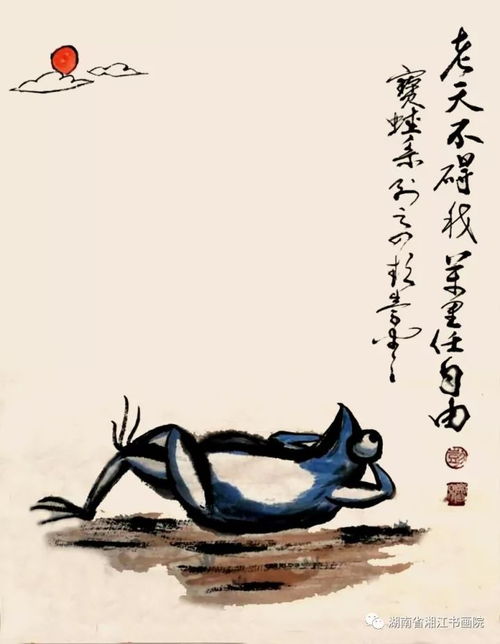 老天不碍我 万里任自由
寶蛙系列之四 彭
湖南省湘江书画院